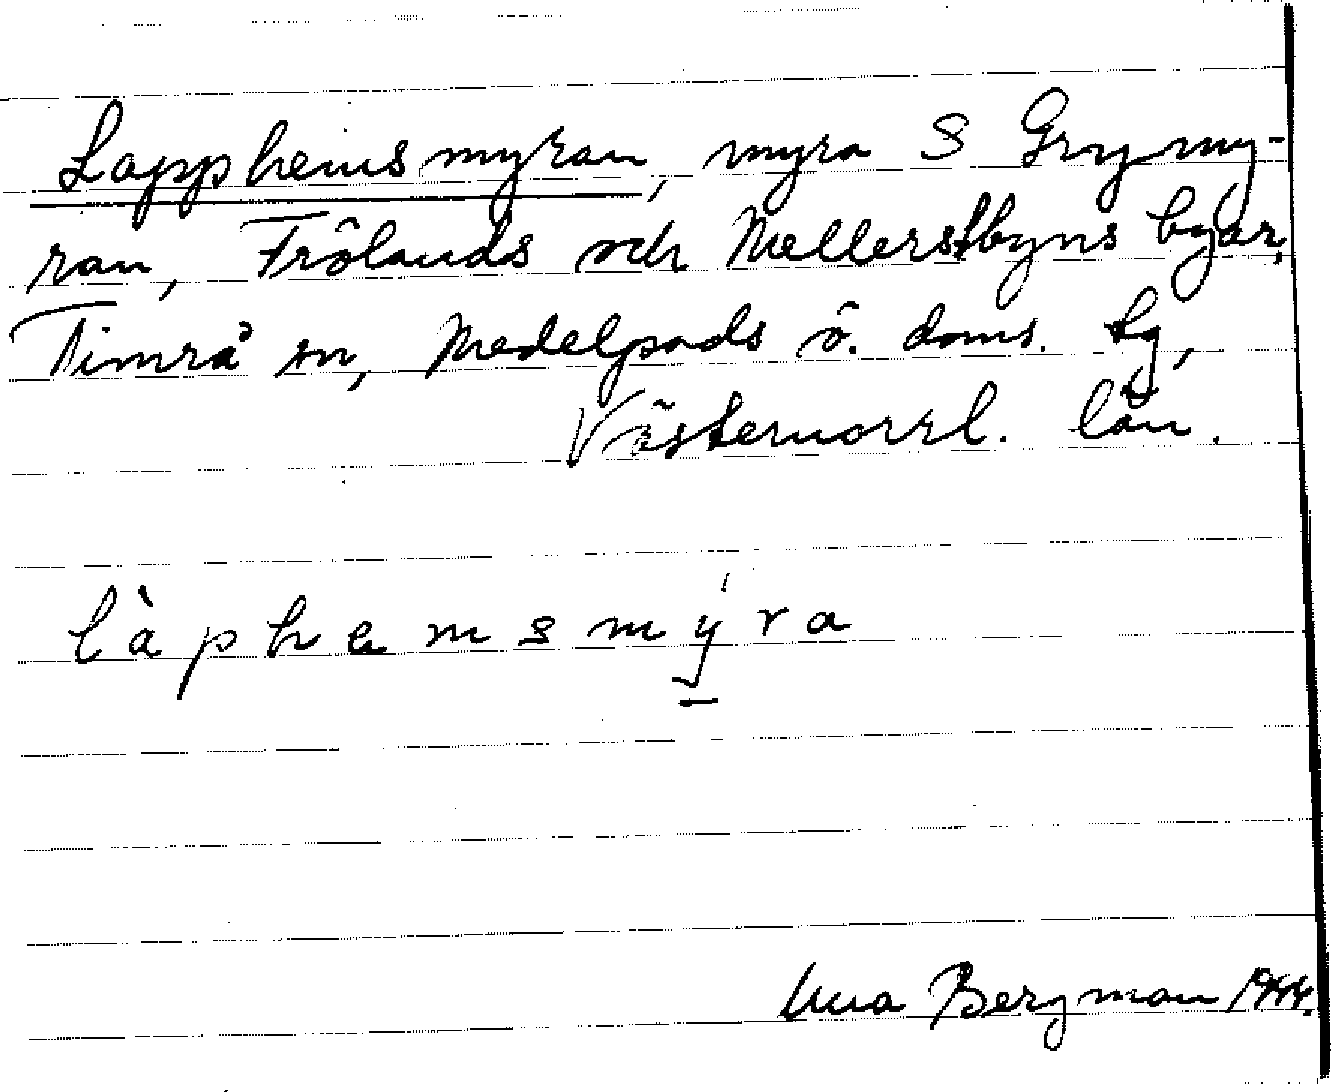 Lapphemsmyran, myra S Grymy-
ran, Frölands och Mellerstbyns byar,
Timrå sn, Medelpads ö. doms. tg,
Västernorrl. län.
làphemsmýra
Bergman 1944.